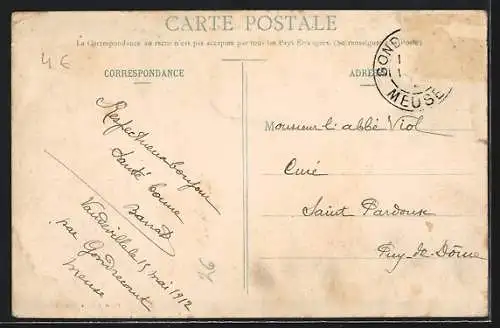 4 €
CARTE POSTALE
La Correspondance au recto n'est pas acceptée par tous les Pays Etrangers. (Se renseigner à la Poste)
CORRESPONDANCE
ADRE
GOND
MEUSE
Respectueux bonjour
Santé bonne
Vaudeville le 15 mai 1912
par Gondrecourt
Meuse
Monsieur l'abbé Viol
Curé
Saint Pardoux
Puy-de-Dôme